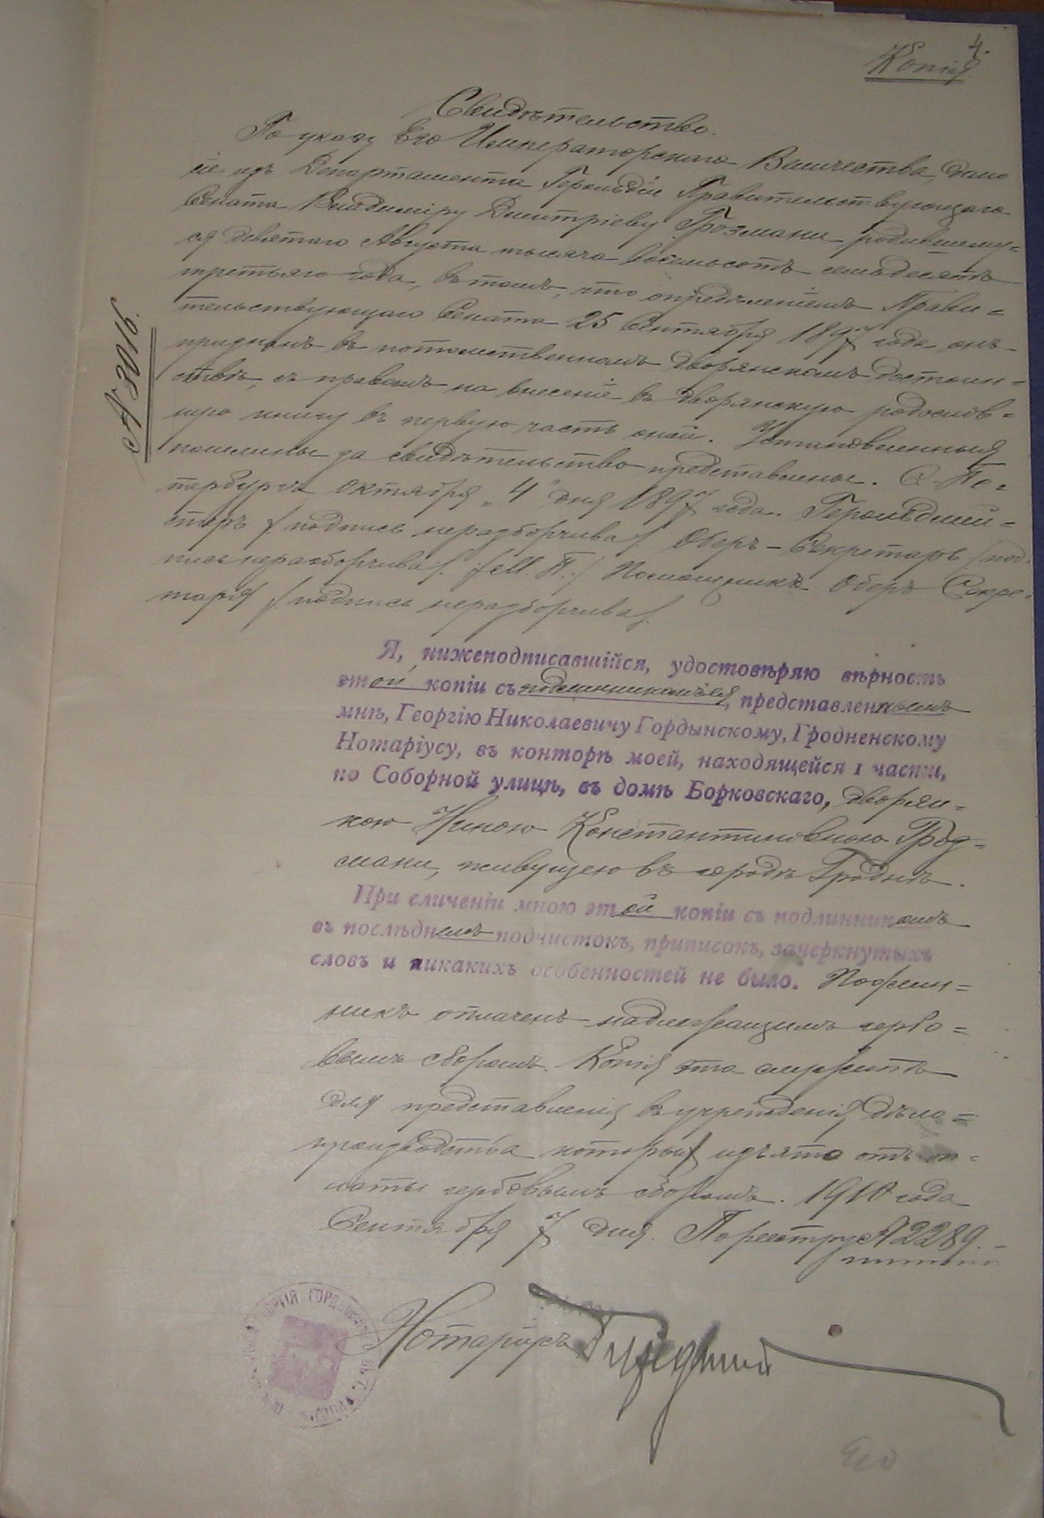 4.
Копія
Свидѣтельство.
По указу Его Императорскаго Величества, дано
сіе изъ Департамента Герольдіи Правительствующаго
Сената Владиміру Дмитріеву Грозмани, родившему-
ся девятаго Августа тысяча восемьсотъ семьдесятъ
третьяго года, въ томъ, что опредѣленіемъ Прави-
тельствующаго Сената 25 Сентября 1897 года онъ
признанъ въ потомственномъ дворянскомъ достоин-
ствѣ, съ правомъ на внесеніе въ дворянскую родослов-
ную книгу въ первую часть оной. Установленныя
пошлины за свидѣтельство представлены. С. Пе-
тербургъ Октября „4" дня 1897 года. Герольдмей-
стеръ /подпись неразборчива/. Оберъ-Секретарь /под-
пись неразборчива/. /М. П./ Помощникъ Оберъ Секре-
таря /подпись неразборчива/.
№ 3016.
Я, нижеподписавшійся, удостовѣряю вѣрность
этой копіи съ подлинникомъ ея, представленнымъ
мнѣ, Георгію Николаевичу Гордынскому, Гродненскому
Нотаріусу, въ конторѣ моей, находящейся 1 части,
по Соборной улицѣ, въ домѣ Борковскаго, дворян-
кою Ниною Константиновною Гроз-
мани, живущею въ городѣ Гроднѣ.
При сличеніи мною этой копіи съ подлинникомъ
въ послѣднемъ подчистокъ, приписокъ, зачеркнутыхъ
словъ и никакихъ особенностей не было. Подлин-
никъ оплаченъ надлежащимъ гербо-
вымъ сборомъ. Копія эта служитъ
для представленія въ учрежденія, дѣло-
производства которыхъ изъято отъ оп-
латы гербовымъ сборомъ. 1910 года
Сентября 7 дня. По реестру № 2289.
Нотаріусъ Гордынскій